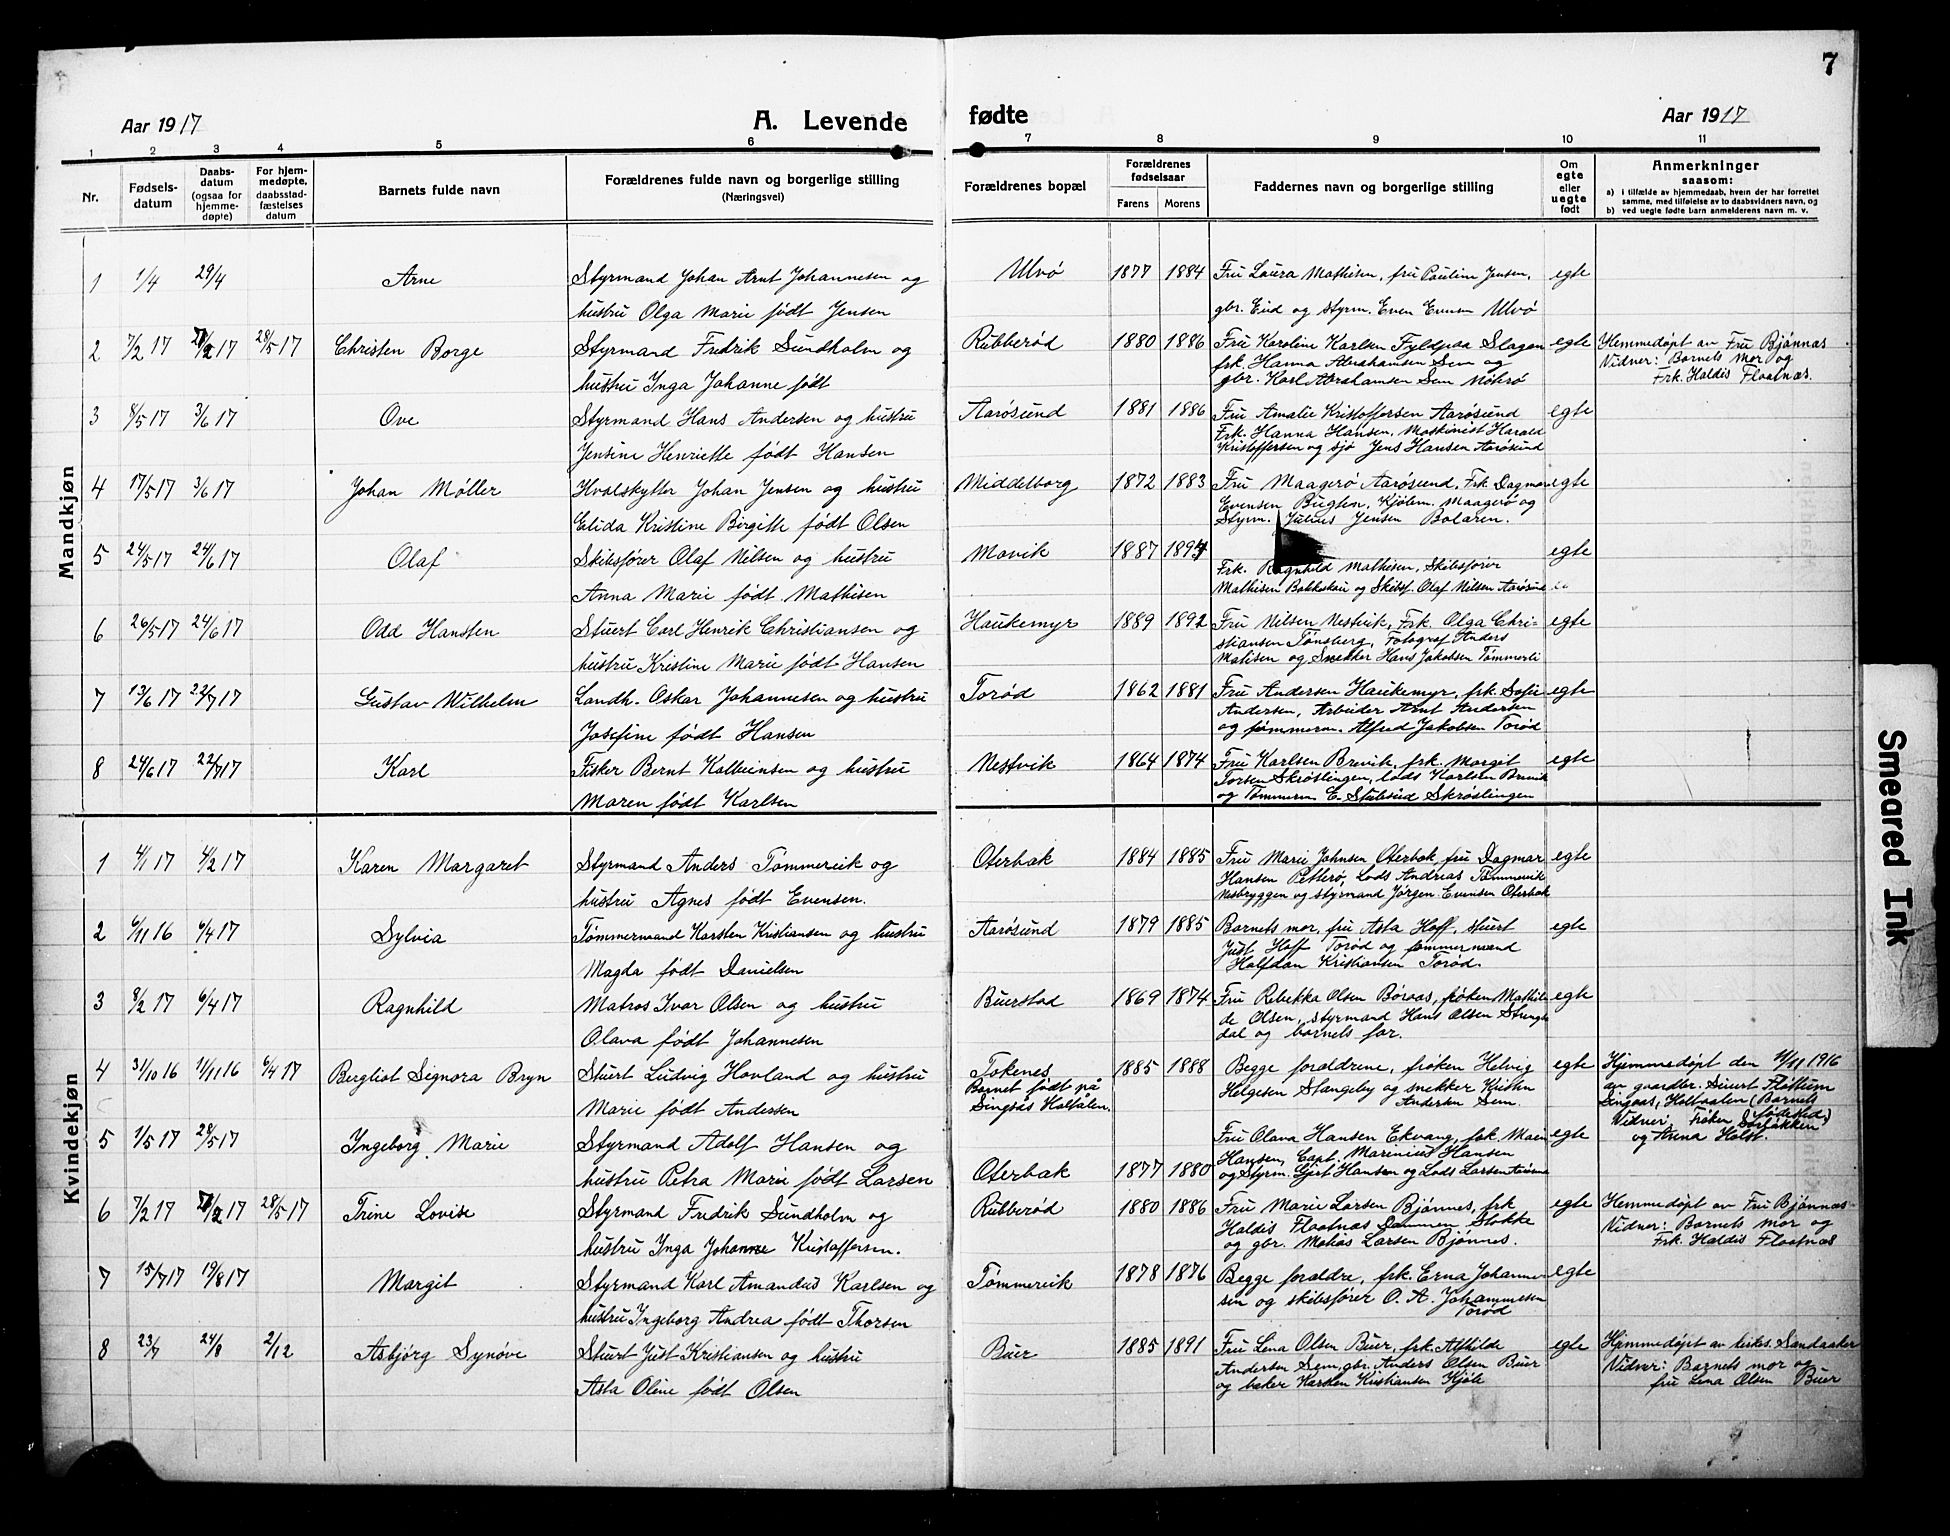 7
Aar 1917
A. Levende fødte
Aar 1917
1 2 3 4 5 6 7 8 9 10 11
Nr.
Fødsels-
datum
Daabs-
datum
(ogsaa for
hjemme-
døpte)
For hjem-
medøpte,
daabsstad-
fæstelses
datum
Barnets fulde navn
Forældrenes fulde navn og borgerlige stilling
(Næringsvei)
Forældrenes bopæl
Forældrenes
fødselsaar
Farens Morens
Faddernes navn og borgerlige stilling
Om
egte
eller
uegte
født
Anmerkninger
saasom:
a) i tilfælde av hjemmedaab, hvem der har forrettet
samme, med tilføielse av to daabsvidners navn, og
b) ved uegte fødte barn anmelderens navn m. v.
Mandkjøn
1 1/4 29/4 Arne Styrmand Johan Arnt Johannesen og Ulvö 1877 1884 Fru Laura Mathisen, fru Pauline Jensen, egte
hustru Olga Marie født Jensen gbr. Eud og styrm. Even Evensen Ulvö
2 7/2 17 /2 17 28/5 17 Christen Borge Styrmand Fredrik Sundholm og Rubberød 1880 1886 Fru Karoline Karlsen Fyldpaa Slagen egte Hemmedøpt av Fru Bjønnæs
hustru Inga Johanne født frk. Hanna Abrahamsen Sem og Vidner: Barnets mor og
gbr. Karl Abrahamsen Sem Frk. Haldis Flaatnæs.
3 8/5 17 3/6 17 Ove Styrmand Hans Andersen og hustru Aarøsund 1881 1886 Fru Amalie Kristoffersen Aarøsund egte
Jensine Henriette født Hansen Frk. Hanna Hansen, Maskinist Harald
Kristoffersen og sjø Jens Hansen Aarøsund
4 17/5 17 3/6 17 Johan Møller Hvalskytter Johan Jensen og hustru Middelborg 1872 1883 Fru Maagerø Aarøsund, Frk Dagmar egte
Elida Kristine Birgitte født Olsen Evensen Bugten, Kjølem. Maagerø og
Styrm. Julius Jensen Bolæren.
5 24/5 17 24/6 17 Olaf Skibsfører Olaf Nilsen og hustru Movik 1887 189 egte
Anna Marie født Mathisen Frk. Ragnhild Mathisen, Skibsfører
Mathisen Bakkskau og Skibsf. Olaf Nilsen Aarøsund
6 26/5 17 24/6 17 Odd Hansten Stuert Carl Henrik Christiansen og Haukemyr 1889 1892 Fru Nilsen Nestvik, Frk. Olga Chri- egte
hustru Kristine Marie født Hansen stiansen Tønsberg, Fotograf Anders
Matisen og Snekker Hans Jakobsen Tømmerli
7 13/6 17 22/7 17 Gustav Wilhelm Landh. Oskar Johannesen og hustru Torød 1862 1881 Fru Andersen Haukemyr, frk. Sofie egte
Josefine født Hansen Andersen, Arbeider Arnt Andersen
og tømmerm. Alfred Jakobsen Torød
8 24/6 17 22/7 17 Karl Fisker Bernt Kalleinsen og hustru Nestvik 1864 1874 Fru Karlsen Brevik, frk. Margit egte
Maren født Karlsen Torsen Skrøslingen, lods Karlsen Brevik
og Tømmerm. E. Skrøslingen
Kvindekjøn
1 4/1 17 4/2 17 Karen Margaret Styrmand Anders Tømmervik og Oterbæk 1884 1885 Fru Marie Johnsen Oterbæk, fru Dagmar egte
hustru Agnes født Evensen. Hansen Petterø, Lods Andreas Tømmervik
Nesbryggen og styrmand Jørgen Evensen Oterbæk
2 6/11 16 6/4 17 Sylvia Tømmermand Karsten Kristiansen og hustru Aarøsund 1879 1885 Barnets mor, fru Asta Hoff, stuert egte
Magda født Danielsen Just Hoff Torød og tømmermand
Halfdan Kristiansen Torød.
3 8/2 17 6/4 17 Ragnhild Matros Ivar Olsen og hustru Buerstad 1869 1874 Fru Rebekka Olsen Børaas, frøken Mathil- egte
Olava født Johannesen de Olsen, styrmand Hans Olsen Strengs-
dal og barnets far.
4 31/10 16 11/11 16 6/4 17 Bergliot Signora Bryn Stuert Ludvig Hovland og hustru Tokenes 1885 1888 Begge forældrene, frøken Helvig egte Hjemmedøpt den 11/11 1916
Marie født Andersen Barnet født på Helgesen Slangeby og snekker Kristen av gaardbr. Sivert Flottum
Singsås Holtålen. Andersen Sem. Singsaas, Holtaalen (Barnets
fødested)
Vidner: Frøken
og Anna Holst.
5 1/5 17 28/5 17 Ingeborg Marie Styrmand Adolf Hansen og Fru Olava Hansen Ekvang, frk. egte
hustru Petra Marie født Larsen Oterbæk 1877 1880 Hansen, Capt. Marinius Hansen
og Styrm. Gjert Hansen og Lods Larsen
6 7/2 17 /2 17 28/5 17 Trine Lovise Styrmand Fredrik Sundholm og Rubberød 1880 1886 Fru Marie Larsen Bjønnes, frk egte Hemmedøpt av Fru Bjønnæs
hustru Inga Johanne Kristoffersen. Haldis Flaatnæs Dammen Stokke Vidner: Barnets mor og
og gbr. Matias Larsen Bjønnes. Frk. Haldis Flaatnæs
7 15/7 17 19/8 17 Margit Styrmand Karl Amandus Karlsen og Tømmervik 1878 1876 Begge forældre, frk. Erna Johanne- egte
hustru Ingeborg Andrea født Thorsen sen og skibsfører O. A. Johannesen
Torød
8 23/7 24/8 2/12 Asbjørg Synøve Stuert Just Kristiansen og hustru Buer 1885 1891 Fru Lena Olsen Buer, frk. Alfhilde egte Hjemmedøpt av Sandaaker
Asta Oline født Olsen Andersen Sem, gbr. Anders Olsen Buer Vidner: Barnets mor og
og baker Karsten Kristiansen Kjøle fru Lena Olsen Buer
Smeared Ink